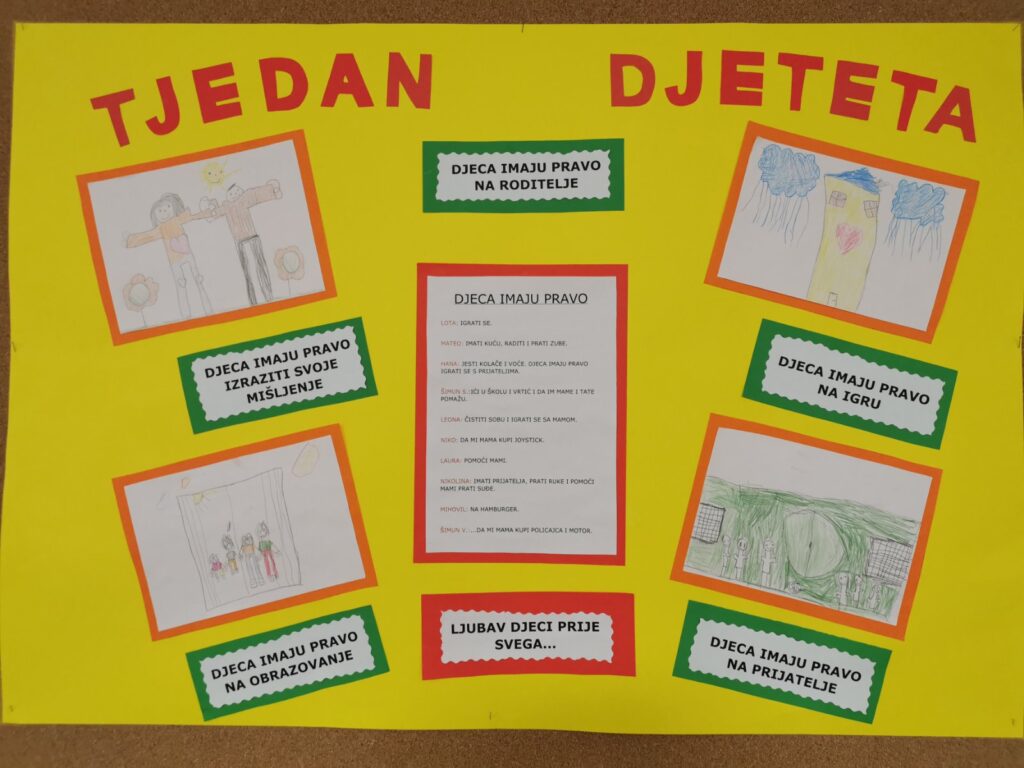 TJEDAN DJETETA
DJECA IMAJU PRAVO
NA RODITELJE
DJECA IMAJU PRAVO
IZRAZITI SVOJE
MIŠLJENJE
DJECA IMAJU PRAVO
NA OBRAZOVANJE
DJECA IMAJU PRAVO
LOTA: IGRATI SE.
MATEO: IMATI KUĆU, RADITI I PRATI ZUBE.
HANA: JESTI KOLAČE I VOĆE. DJECA IMAJU PRAVO
IGRATI SE S PRIJATELJIMA.
ŠIMUN S.:IĆI U ŠKOLU I VRTIĆ I DA IM MAME I TATE
POMAŽU.
LEONA: ČISTITI SOBU I IGRATI SE SA MAMOM.
NIKO: DA MI MAMA KUPI JOYSTICK.
LAURA: POMOĆI MAMI.
NIKOLINA: IMATI PRIJATELJA, PRATI RUKE I POMOĆI
MAMI PRATI SUĐE.
MIHOVIL: NA HAMBURGER.
ŠIMUN V.:...DA MI MAMA KUPI POLICAJCA I MOTOR.
LJUBAV DJECI PRIJE
SVEGA...
DJECA IMAJU PRAVO
NA IGRU
DJECA IMAJU PRAVO
NA PRIJATELJE